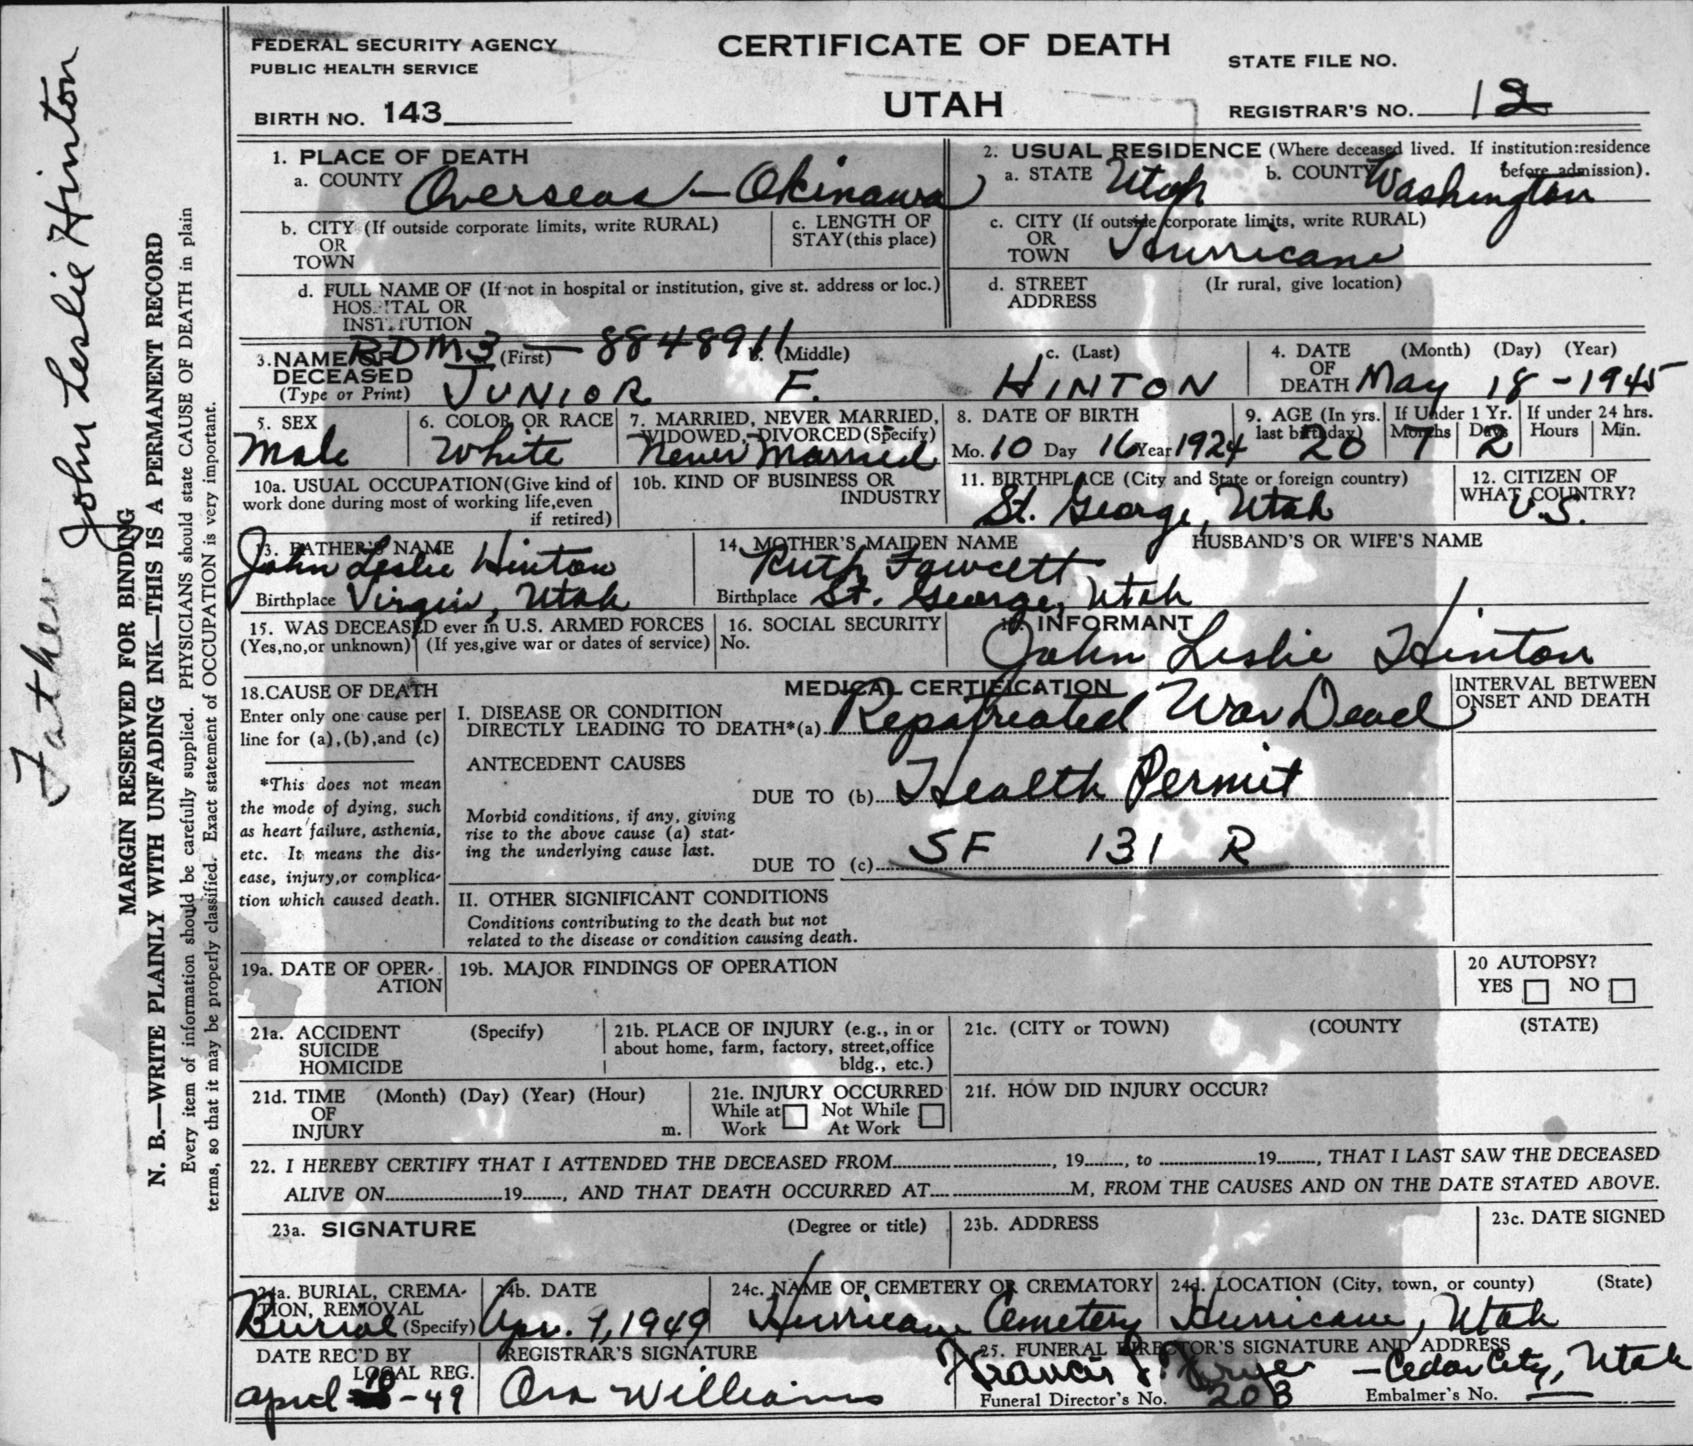 FEDERAL SECURITY AGENCY
PUBLIC HEALTH SERVICE
BIRTH NO. 143
CERTIFICATE OF DEATH
UTAH
STATE FILE NO.
REGISTRAR'S NO. 12
1. PLACE OF DEATH
a. COUNTY Overseas - Okinawa
b. CITY (If outside corporate limits, write RURAL)
OR
TOWN
c. LENGTH OF
STAY (this place)
d. FULL NAME OF (If not in hospital or institution, give st. address or loc.)
HOSPITAL OR
INSTITUTION
2. USUAL RESIDENCE (Where deceased lived. If institution:residence
before admission).
a. STATE Utah b. COUNTY Washington
c. CITY (If outside corporate limits, write RURAL)
OR
TOWN Hurricane
d. STREET (Ir rural, give location)
ADDRESS
RDM3 - 8848911
3. NAME OF (First) (Middle) c. (Last)
DECEASED
(Type or Print) JUNIOR F. HINTON
4. DATE (Month) (Day) (Year)
OF
DEATH May 18-1945
5. SEX
Male
6. COLOR OR RACE
White
7. MARRIED, NEVER MARRIED,
WIDOWED, DIVORCED (Specify)
Never Married
8. DATE OF BIRTH
Mo. 10 Day 16 Year 1924
9. AGE (In yrs.
last birthday)
20
If Under 1 Yr.
Months Days
7 2
If under 24 hrs.
Hours Min.
10a. USUAL OCCUPATION (Give kind of
work done during most of working life, even
if retired)
10b. KIND OF BUSINESS OR
INDUSTRY
11. BIRTHPLACE (City and State or foreign country)
St. George, Utah
12. CITIZEN OF
WHAT COUNTRY?
U.S.
13. FATHER'S NAME
John Leslie Hinton
Birthplace Virgin, Utah
14. MOTHER'S MAIDEN NAME
Ruth Fawcett
Birthplace St. George, Utah
HUSBAND'S OR WIFE'S NAME
15. WAS DECEASED ever in U.S. ARMED FORCES
(Yes, no, or unknown) (If yes, give war or dates of service)
16. SOCIAL SECURITY
No.
INFORMANT
John Leslie Hinton
18. CAUSE OF DEATH
Enter only one cause per
line for (a), (b), and (c)
*This does not mean
the mode of dying, such
as heart failure, asthenia,
etc. It means the dis-
ease, injury, or complica-
tion which caused death.
MEDICAL CERTIFICATION
I. DISEASE OR CONDITION
DIRECTLY LEADING TO DEATH*(a) Repatreated War Dead
ANTECEDENT CAUSES
DUE TO (b) Health Permit
Morbid conditions, if any, giving
rise to the above cause (a) stat-
ing the underlying cause last.
DUE TO (c) SF 131 R
II. OTHER SIGNIFICANT CONDITIONS
Conditions contributing to the death but not
related to the disease or condition causing death.
INTERVAL BETWEEN
ONSET AND DEATH
19a. DATE OF OPER-
ATION
19b. MAJOR FINDINGS OF OPERATION
20 AUTOPSY?
YES NO
21a. ACCIDENT (Specify)
SUICIDE
HOMICIDE
21b. PLACE OF INJURY (e.g., in or
about home, farm, factory, street, office
bldg., etc.)
21c. (CITY or TOWN) (COUNTY (STATE)
21d. TIME (Month) (Day) (Year) (Hour)
OF
INJURY m.
21e. INJURY OCCURRED
While at Not While
Work At Work
21f. HOW DID INJURY OCCUR?
22. I HEREBY CERTIFY THAT I ATTENDED THE DECEASED FROM , 19 , to 19 , THAT I LAST SAW THE DECEASED
ALIVE ON 19 , AND THAT DEATH OCCURRED AT M, FROM THE CAUSES AND ON THE DATE STATED ABOVE.
23a. SIGNATURE (Degree or title)
23b. ADDRESS
23c. DATE SIGNED
24a. BURIAL, CREMA-
TION, REMOVAL
Burial (Specify)
24b. DATE
Apr. 7, 1949
24c. NAME OF CEMETERY OR CREMATORY
Hurricane Cemetery
24d. LOCATION (City, town, or county) (State)
Hurricane, Utah
DATE REC'D BY
LOCAL REG.
April -49
REGISTRAR'S SIGNATURE
Ora Williams
25. FUNERAL DIRECTOR'S SIGNATURE AND ADDRESS
Francis - Cedar City, Utah
Funeral Director's No. 203 Embalmer's No.
Father John Leslie Hinton
MARGIN RESERVED FOR BINDING
N. B.—WRITE PLAINLY WITH UNFADING INK—THIS IS A PERMANENT RECORD
Every item of information should be carefully supplied. PHYSICIANS should state CAUSE OF DEATH in plain
terms, so that it may be properly classified. Exact statement of OCCUPATION is very important.